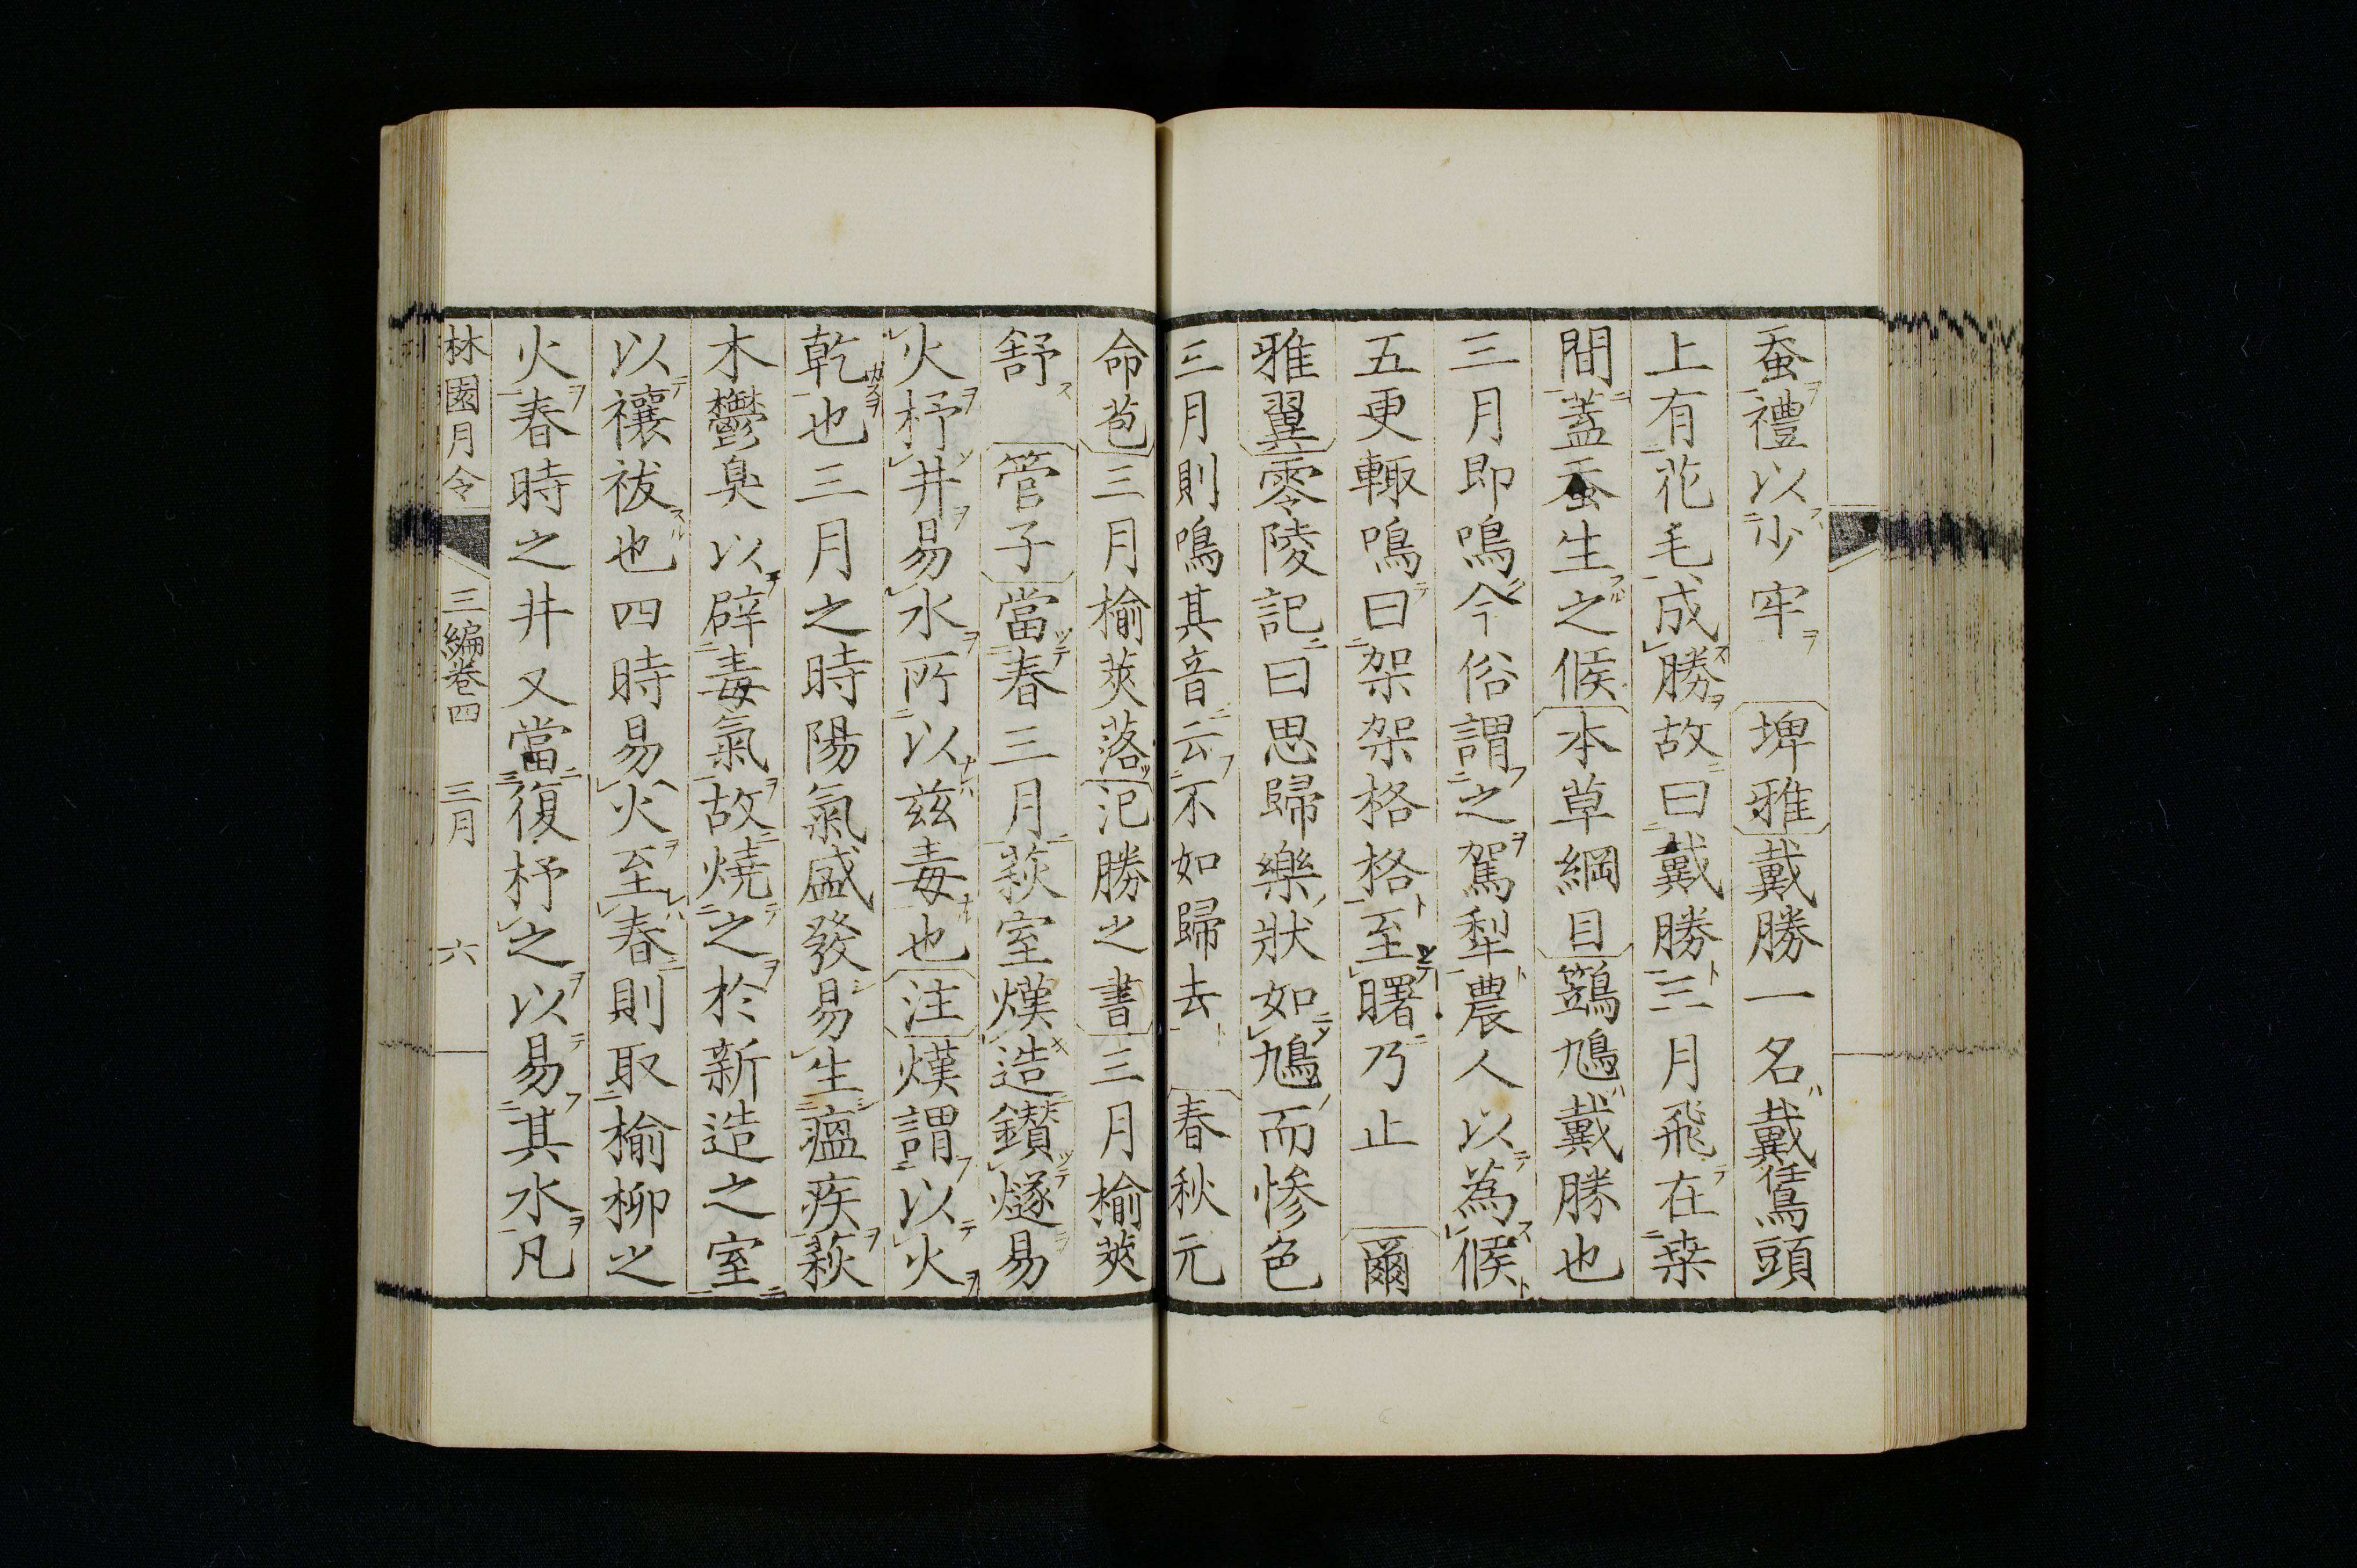 蚕禮以少牢 埤雅戴勝一名戴鵀頭
上有花毛成勝故曰戴勝三月飛在桒
間蓋蚕生之候本草綱目鷑鳩戴勝也
三月即鳴今俗謂之駕犁農人以為候
五更輙鳴曰架架格格至曙乃止 爾
雅翼零陵記曰思歸樂狀如鳩而慘色
三月則鳴其音云不如歸去 春秋元
命苞三月榆莢落氾勝之書三月榆莢
舒 管子當春三月萩室熯造鑽燧易
火杼井易水所以茲毒也注熯謂以火
乾也三月之時陽氣盛發易生瘟疾萩
木鬱臭以辟毒氣故燒之於新造之室
以禳祓也四時易火至春則取榆柳之
火春時之井又當復杼之以易其水凡
林園月令 三編卷四 三月 六